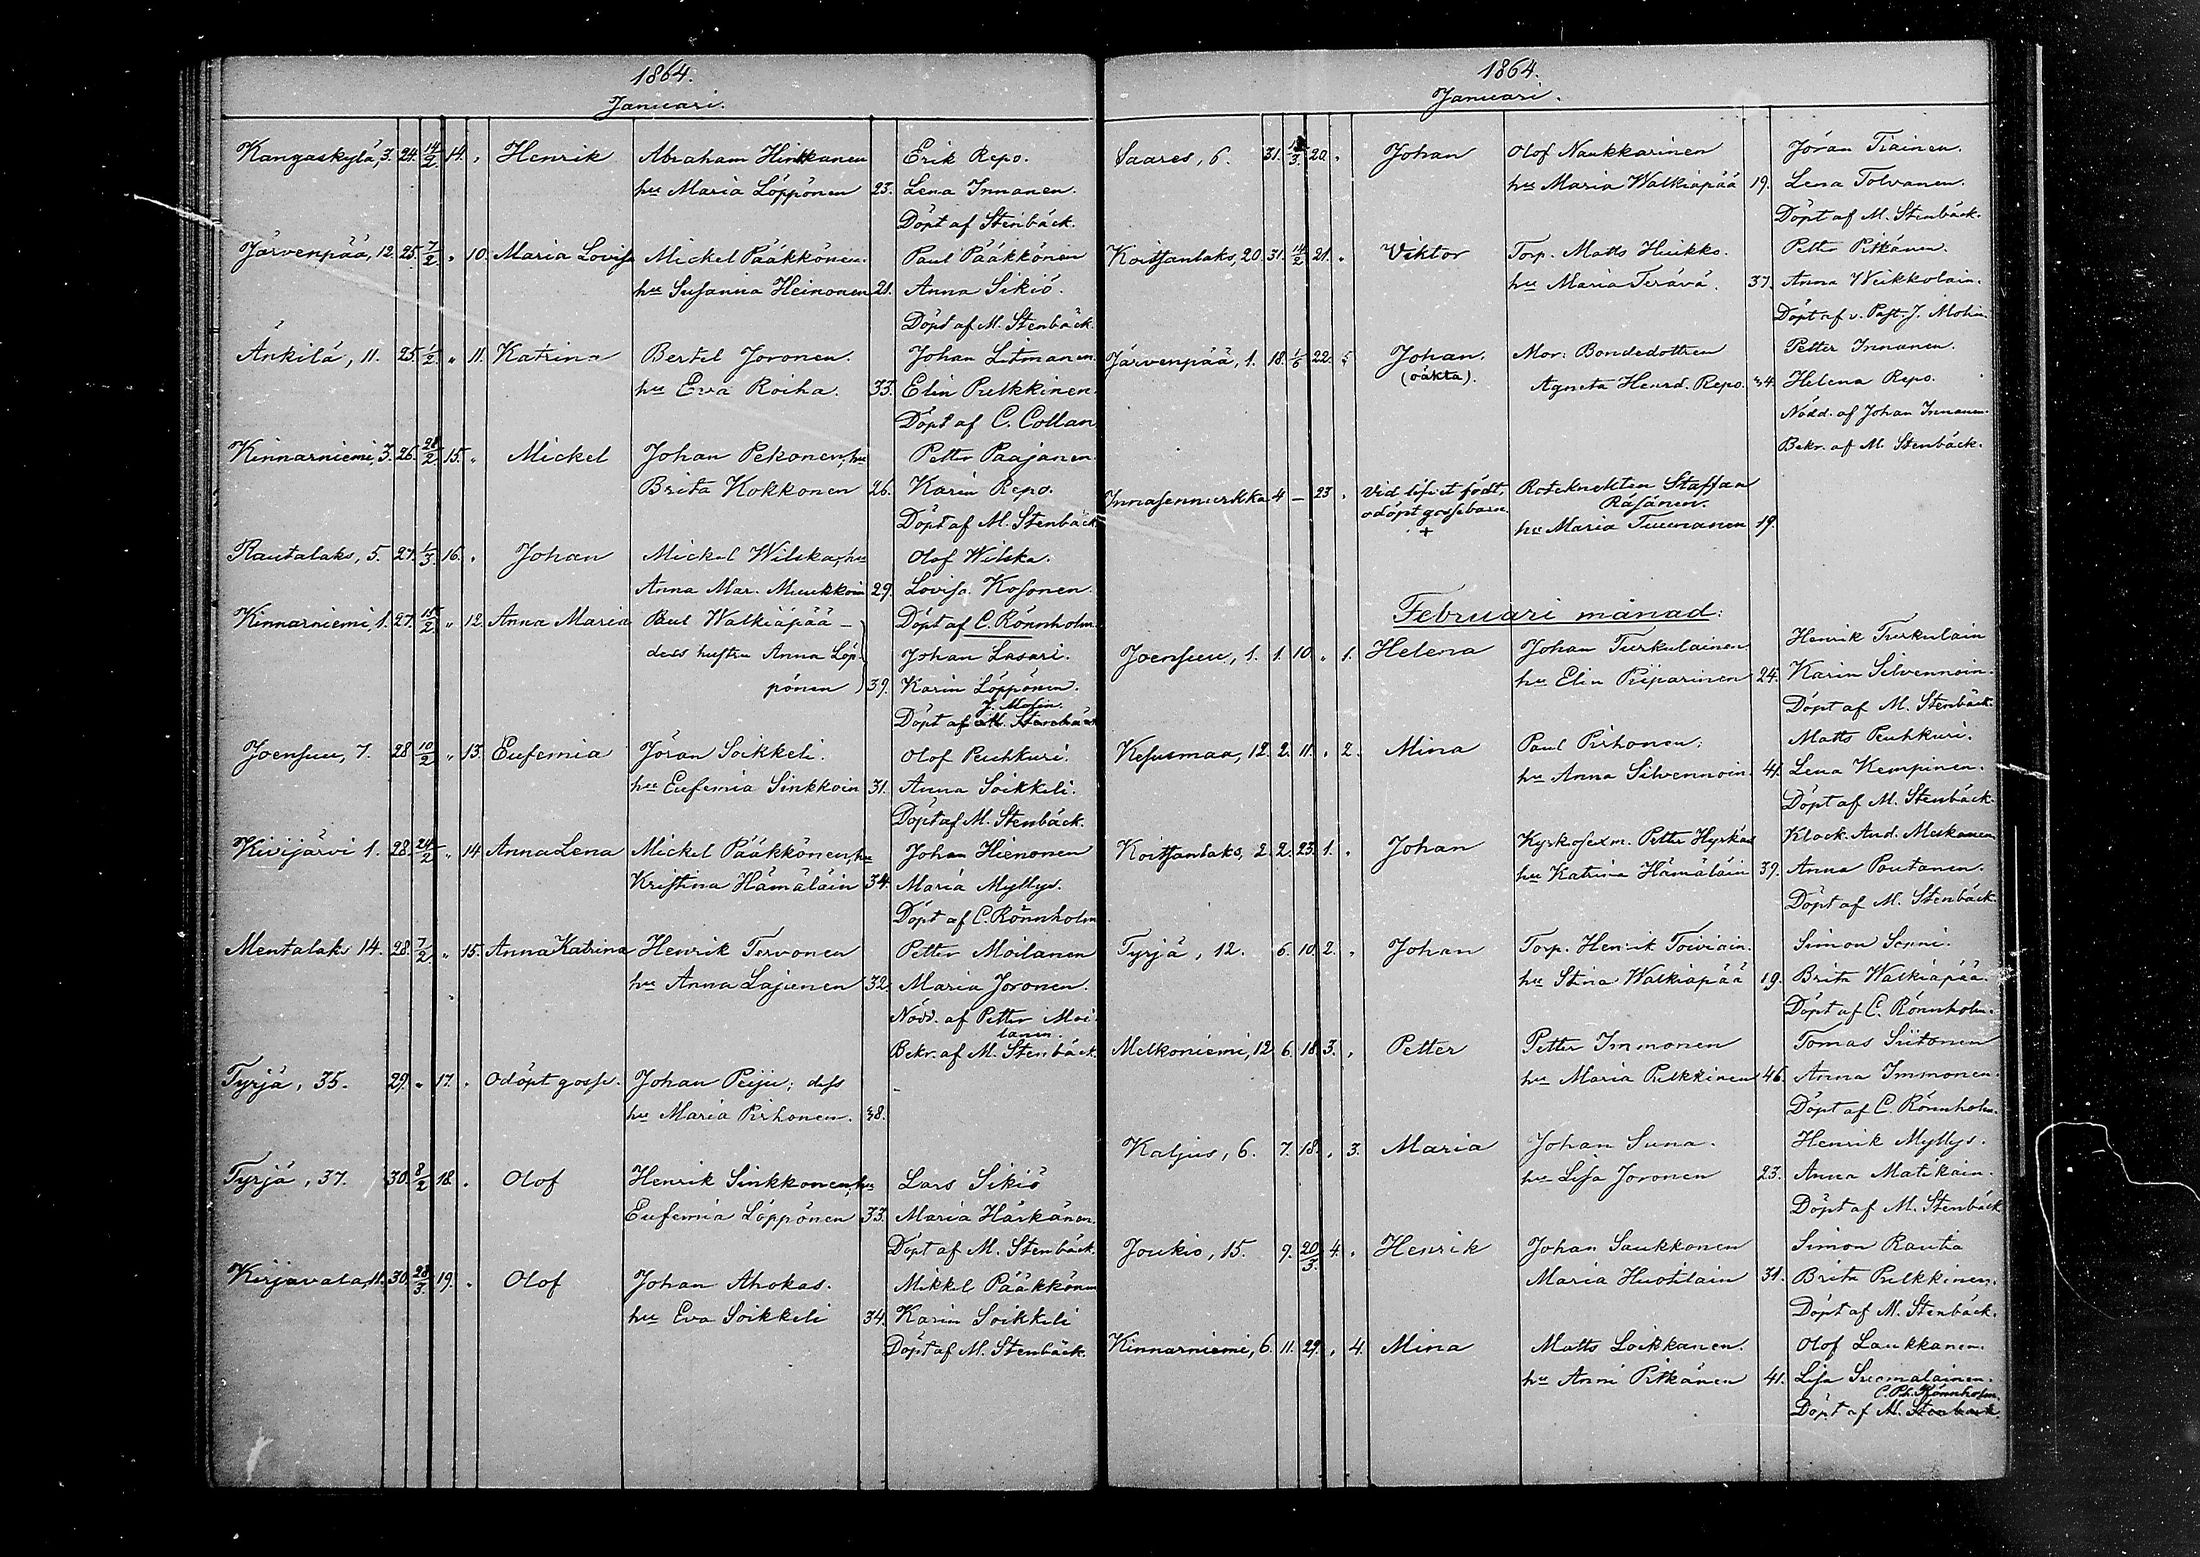 1864.
Januari.
Kangaskylä, 3. 24. 14/2. 14. " Henrik Abraham Hinkkanen Erik Repo.
hu Maria Löppönen 23. Lena Innanen.
Döpt af Stenbäck.
Järvenpää, 12. 25. 7/2. " 10. Maria Lovisa Mickel Pääkkönen. Paul Pääkkönen
hu Susanna Heinonen 21. Anna Sikiö.
Döpt af M. Stenbäck.
Änkilä, 11. 25. 1/2. " 11. Katrina Bertil Joronen. Johan Litmanen.
hu Eva Roiha. 33. Elin Pulkkinen.
Döpt af C. Collan
Kinnarniemi, 3. 26. 28/2. 15. " Mickel Johan Pekonen, hu Petter Paajanen.
Brita Kokkonen 26. Karin Repo.
Döpt af M. Stenbäck
Rautalaks, 5. 27. 1/3. 16. " Johan Mickel Wilska, hu Olof Wilska.
Anna Mar. Muukkoin 29. Lovisa Kosonen.
Kinnarniemi, 1. 27. 15/2. " 12. Anna Maria Paul Walkiapää – Döpt af C. Rönnholm.
dess hustru Anna Löp- Johan Lasari.
pönen 39. Karin Löppönen.
J. Molin.
Döpt af M. Stenbäck
Joensuu, 7. 28 10/2 " 13. Eufemia Jöran Soikkeli. Olof Peuhkuri.
hu Eufemia Sinkkoin 31. Anna Soikkeli.
Döpt af M. Stenbäck.
Kivijärvi 1. 28. 24/2 " 14 Anna Lena Mickel Pääkkönen, hu Johan Hienonen
Kristina Hämäläin 34. Maria Myllys.
Döpt af C. Rönnholm
Mentalaks 14. 28. 7/2. " 15. Anna Katrina Henrik Tervonen Petter Moilanen
hu Anna Lajunen 32. Maria Joronen.
Nödd. af Petter Moi-
lanen.
Bekr. af M. Stenbäck.
Tyrjä, 35. 29. " 17. " Odöpt gosse. Johan Peiju; dess
hu Maria Pirhonen. 38.
Tyrjä, 37. 30. 8/2 18. " Olof Henrik Sinkkonen, hu Lars Sikiö
Eufemia Löppönen 33. Maria Härkänen.
Döpt af M. Stenbäck.
Kirjavala, 11. 30. 28/3. 19. " Olof Johan Ahokas. Mikkel Pääkkönen
hu Eva Soikkeli 34. Karin Soikkeli
Döpt af M. Stenbäck.
1864.
Januari.
Saares, 6. 31. 3. 20. " Johan Olof Naukkarinen Jöran Tiainen.
hu Maria Walkiapää 19. Lena Tolvanen.
Döpt af M. Stenbäck.
Koitsanlaks, 20 31. 14/2 21. " Viktor Torp. Matts Huikko. Petter Pitkänen.
hu Maria Terävä. 37. Anna Weikkolain.
Döpt af v. Past. J. Molin.
Järvenpää, 1. 18. 1/5 22. " Johan. Mor: Bondedottren Petter Innanen.
(oäkta). Agneta Henrd. Repo. 34. Helena Repo.
Nödd. af Johan Innanen.
Bekr. af M. Stenbäck.
Innasennurkka 4 – 23 " Vid lifvet födt, Roteknekten Staffan
odöpt gossebarn Räsänen.
+ hu Maria Tuunanen 19.
Februari månad:
Joensuu, 1. 1. 10. " 1. Helena Johan Turkulainen Henrik Turkulain
hu Elin Piiparinen 24. Karin Silvennoin.
Döpt af M. Stenbäck
Kesusmaa, 12. 2. 11. " 2. Mina Paul Pirhonen; Matts Peuhkuri.
hu Anna Silvennoin. 41. Lena Kempinen.
Döpt af M. Stenbäck.
Koitsanlaks, 2. 2. 23. 1. " Johan Kyrkosexm. Petter Hyrkäs Klock. And. Meskanen
hu Katrina Hämäläin 39. Anna Poutanen.
Döpt af M. Stenbäck
Tyrjä, 12. 6. 10. 2. " Johan Torp. Henrik Toiviain. Simon Sonni.
hu Stina Walkiapää 19. Brita Walkiapää.
Döpt af C. Rönnholm.
Melkoniemi, 12 6. 18. 3. " Petter Petter Immonen Tomas Siitonen
hu Maria Pulkkinen 46. Anna Immonen.
Döpt af C. Rönnholm.
Kaljus, 6. 7. 18. " 3. Maria Johan Suna. Henrik Myllys.
hu Lisa Joronen 23. Anna Matikain.
Döpt af M. Stenbäck
Joukio, 15. 9. 20/3. 4. " Henrik Johan Saukkonen Simon Rautia
Maria Huotilain 31. Brita Pulkkinen.
Döpt af M. Stenbäck.
Kinnarniemi, 6. 11. 29. " 4. Mina Matts Loikkanen. Olof Laukkanen.
hu Anni Pitkänen 41. Lisa Suomalainen.
C. Ph. Rönnholm.
Döpt af M. Stenbäck.